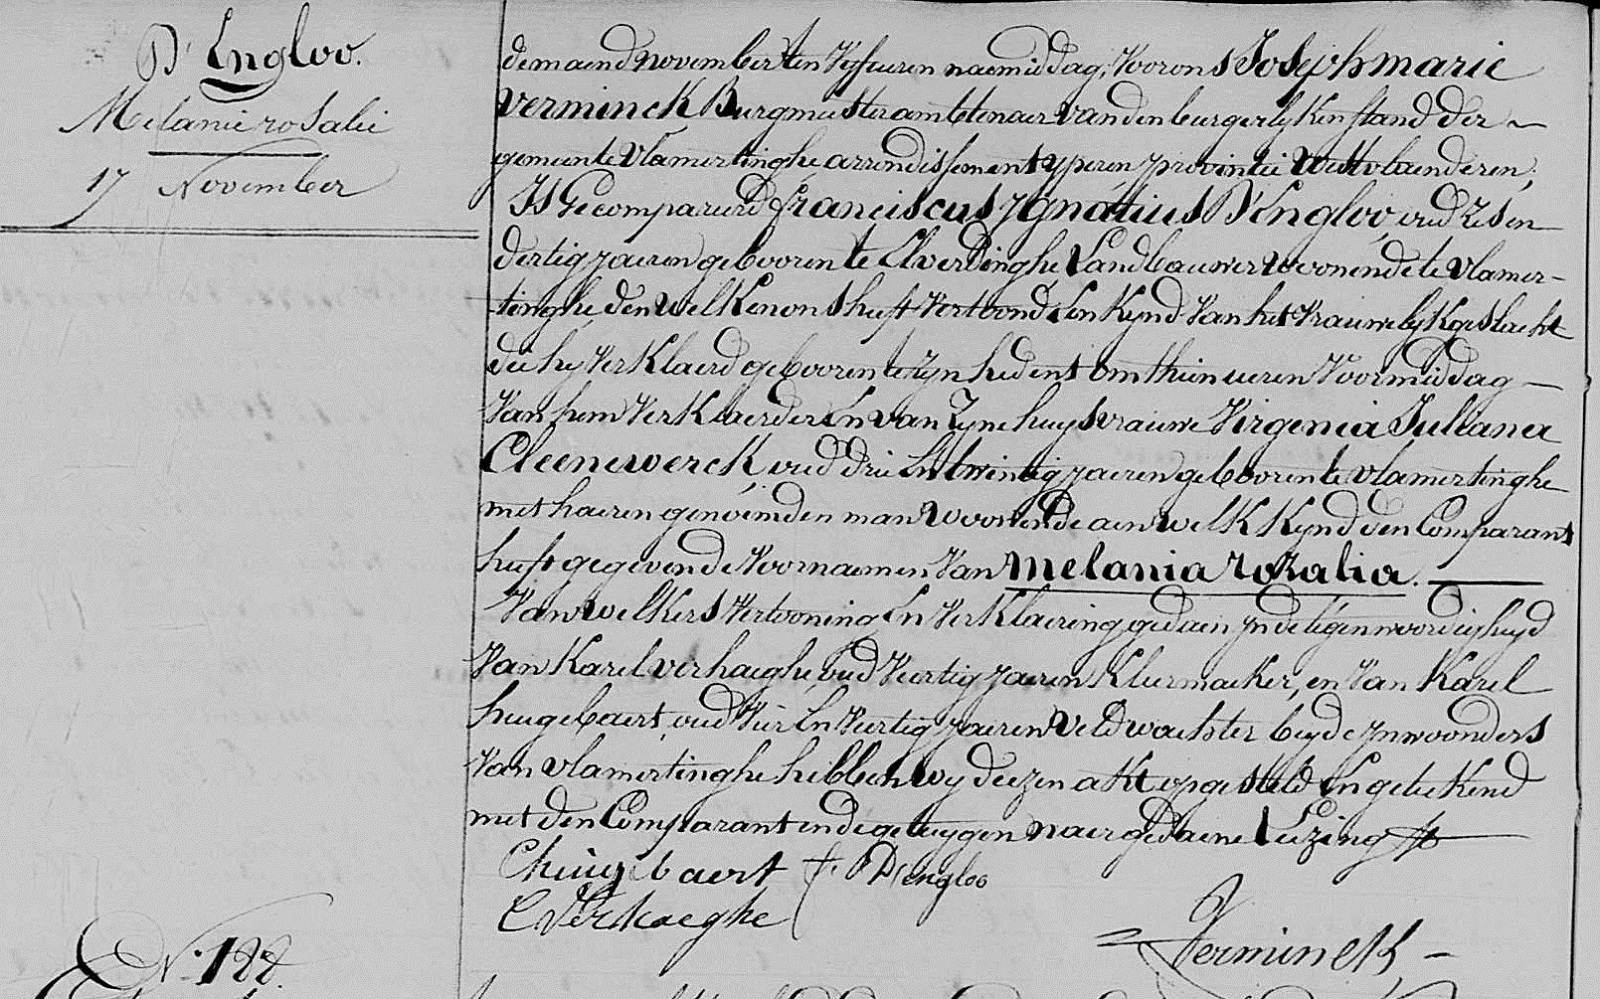 D'Engloo.
Melanie rosalie
17 November
de maend november ten Vyf uren naermiddag, Voor ons Joseph marie
Verminck Burgmeester ambtenaer van den burgerlyken stand der
gemeente Vlamertinghe arrondissement yperen provintie Westvlaenderen,
Is Gecompareerd franciscus ygnatius D'Engloo, oud zes en
dertig jaeren gebooren te Elverdinghe Landbauwer woonende te Vlamer-
tinghe, den welken ons heeft Vertoond Een Kynd Van het Vrauwelyk geslacht
die hy Verklaerd gebooren te zyn hedent om thien ueren Voormiddag
Van hem Verklaerder En van Zyne huysvrauwe Virgenia Juliana
Cleenewerck, oud drie En twintig jaeren gebooren te Vlamertinghe
met haeren genoemden man woonende aen welk Kynd den Comparant
heeft gegeven de Voornaemen Van Melania rozalia.
Van welkers Vertooning En Verklaering gedaen yn de tegenwoordigheyd
Van Karel verhaeghe, oud Veertig jaeren Kleermaeker, en Van Karel
huugebaert, oud Vier En Veertig jaeren Veldwachter beyde ynwoonders
Van Vlamertinghe hebben wy deezen akt opgesteld En geteekend
met den Comparant en de getuygen naer gedaene Leezing
C huugebaert f. D'engloo
C Verhaeghe
Verminck
N. 122